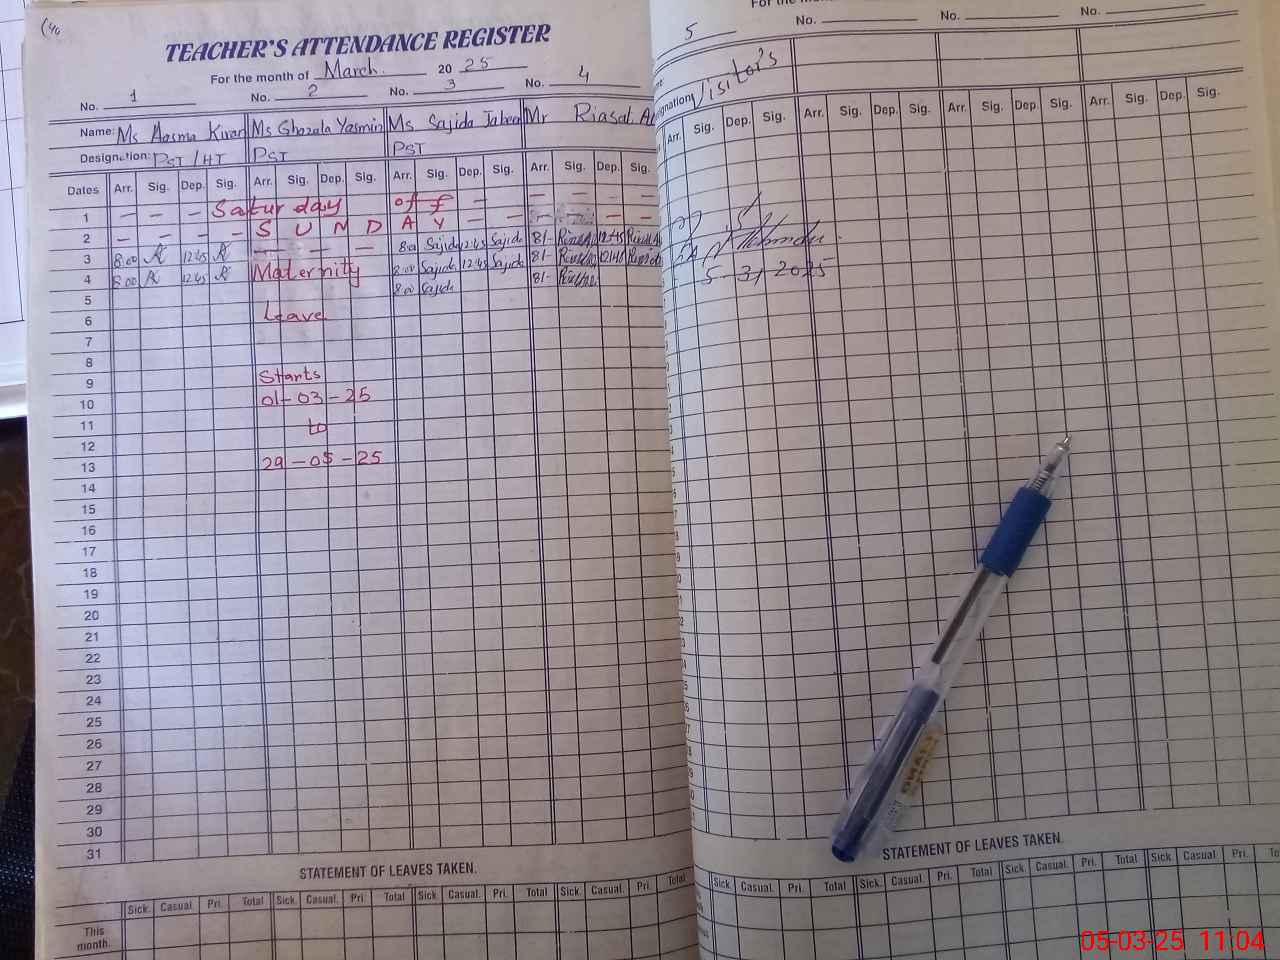 TEACHER'S ATTENDANCE REGISTER
For the month of March. 20 25
No. 1 No. 2 No. 3 No. 4
Name: Ms Aasma Kiran Ms Ghazala Yasmin Ms Sajida Jabeen Mr Riasat
Designation: PST / HT PST PST
Dates Arr. Sig. Dep. Sig. Arr. Sig. Dep. Sig. Arr. Sig. Dep. Sig. Arr. Sig. Dep. Sig.
1 — — — Saturday off — — — — —
2 — — — — S U N D A Y — — — — — —
3 8:00 12:45 — — — — 8:00 Sajida 12:45 Sajida 8/- 12:45
4 8:00 12:45 Maternity 8:00 Sajida 12:45 Sajida 8/- 12/45
5 8:00 Sajida 8/-
6 Leave
7
8
9 Starts
10 01-03-25
11 to
12
13 29-05-25
14
15
16
17
18
19
20
21
22
23
24
25
26
27
28
29
30
31
STATEMENT OF LEAVES TAKEN.
Sick. Casual. Pri. Total Sick. Casual. Pri. Total Sick. Casual. Pri. Total Sick. Casual. Pri. Total
This month.
For the mo
5 No. No. No.
Visitor's
Arr. Sig. Dep. Sig. Arr. Sig. Dep. Sig. Arr. Sig. Dep. Sig. Arr. Sig. Dep. Sig.
5-3-2025
STATEMENT OF LEAVES TAKEN.
Sick. Casual. Pri. Total Sick. Casual. Pri. Total Sick. Casual. Pri. Total Sick. Casual. Pri.
05-03-25 11:04